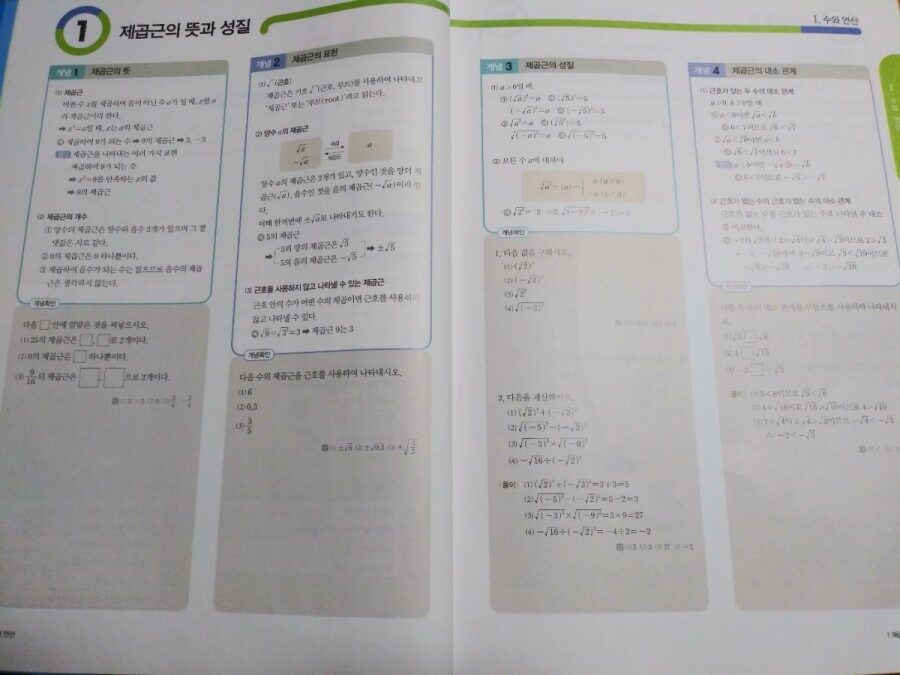 1 제곱근의 뜻과 성질
개념 1 제곱근의 뜻
(1) 제곱근
어떤 수 x를 제곱하여 음이 아닌 수 a가 될 때, x를 a
의 제곱근이라 한다.
➡ x²=a일 때, x는 a의 제곱근
예 제곱하여 9가 되는 수 ➡ 9의 제곱근 ➡ 3, −3
참고 제곱근을 나타내는 여러 가지 표현
제곱하여 9가 되는 수
➡ x²=9를 만족하는 x의 값
➡ 9의 제곱근
(2) 제곱근의 개수
① 양수의 제곱근은 양수와 음수 2개가 있으며 그 절
댓값은 서로 같다.
② 0의 제곱근은 0 하나뿐이다.
③ 제곱하여 음수가 되는 수는 없으므로 음수의 제곱
근은 생각하지 않는다.
개념확인
다음 □ 안에 알맞은 것을 써넣으시오.
(1) 25의 제곱근은 □, □로 2개이다.
(2) 0의 제곱근은 □ 하나뿐이다.
(3) 9/16의 제곱근은 □, □으로 2개이다.
답 (1) 5, −5 (2) 0 (3) 3/4, −3/4
개념 2 제곱근의 표현
(1) √ (근호)
제곱근은 기호 √ (근호, 루트)를 사용하여 나타내고
'제곱근' 또는 '루트(root)'라고 읽는다.
(2) 양수 a의 제곱근
√a
−√a
제곱
제곱근
a
양수 a의 제곱근은 2개가 있고, 양수인 것을 양의 제
곱근(√a), 음수인 것을 음의 제곱근(−√a)이라 한
다.
이때 한꺼번에 ±√a로 나타내기도 한다.
예 5의 제곱근
➡ 5의 양의 제곱근은 √5
5의 음의 제곱근은 −√5 ➡ ±√5
(3) 근호를 사용하지 않고 나타낼 수 있는 제곱근
근호 안의 수가 어떤 수의 제곱이면 근호를 사용하지
않고 나타낼 수 있다.
예 √9=√3²=3 ➡ 제곱근 9는 3
개념확인
다음 수의 제곱근을 근호를 사용하여 나타내시오.
(1) 6
(2) 0.3
(3) 3/5
답 (1) ±√6 (2) ±√0.3 (3) ±√3/5
와 연산
I. 수와 연산
개념 3 제곱근의 성질
(1) a>0일 때
① (√a)²=a 예 (√5)²=5
(−√a)²=a (−√5)²=5
② √a²=a 예 √5²=5
√(−a)²=a 예 √(−5)²=5
(2) 모든 수 a에 대하여
√a²=|a|= a (a≥0)
−a (a<0)
예 √2²=|2|=2, √(−2)²=|−2|=2
개념확인
1. 다음 값을 구하시오.
(1) (√2)²
(2) (−√2)²
(3) √2²
(4) √(−2)²
2. 다음을 계산하시오.
(1) (√2)²+(−√3)²
(2) √(−5)²−(−√2)²
(3) √(−3)²×√(−9)²
(4) −√16÷(−√2)²
풀이 (1) (√2)²+(−√3)²=2+3=5
(2) √(−5)²−(−√2)²=5−2=3
(3) √(−3)²×√(−9)²=3×9=27
(4) −√16÷(−√2)²=−4÷2=−2
답 (1) 5 (2) 3 (3) 27 (4) −2
개념 4 제곱근의 대소 관계
(1) 근호가 있는 두 수의 대소 관계
a>0, b>0일 때
① a<b이면 √a<√b
예 6<7이므로 √6<√7
② √a<√b이면 a<b
예 √6<√7이므로 6<7
참고 a<b이면 −√a>−√b
예 6<7이므로 −√6>−√7
(2) 근호가 있는 수와 근호가 없는 수의 대소 관계
근호가 없는 수를 근호가 있는 수로 나타낸 후 대소
를 비교한다.
예 • 2와 √3에서 2=√4이고 √4>√3이므로 2>√3
개념확인
다음 두 수의 대소 관계를 부등호를 사용하여 나타내시
오.
(1) √5 □ √8
(2) 4 □ √10
(3) −2 □ −√3
풀이 (1) 5<8이므로 √5<√8
(2) 4=√16이고 √16>√10이므로 4>√10
(3) 2=√4이고 √4>√3이므로 −√4<−√3
∴ −2<−√3